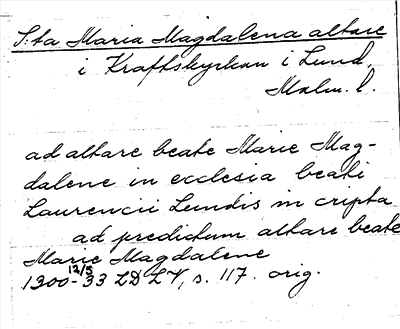 S:ta Maria Magdalena altare
i Kraftskyrkan i Lund,
Malm. l.
ad altare beate Marie Mag-
dalene in ecclesia beati
Laurencii Lundis in cripta
ad predictum altare beate
Marie Magdalene
1300-12/5 33 LD LV, s. 117. orig.